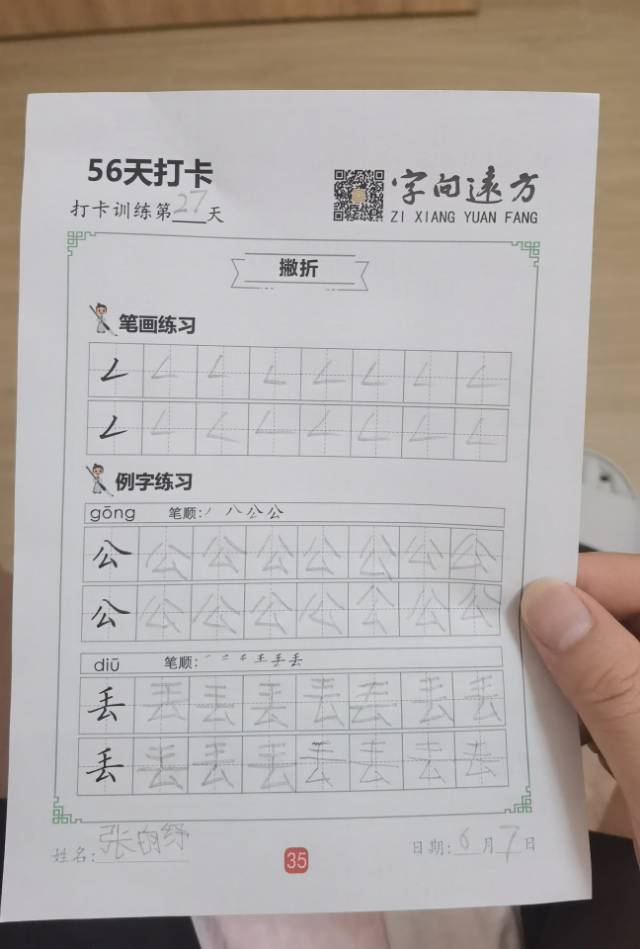 56天打卡
打卡训练第27天
字向远方
ZI XIANG YUAN FANG
撇折
笔画练习
例字练习
gōng 笔顺:丿 八 公 公
公 公 公 公 公 公 公 公
公 公 公 公 公 公 公 公
diū 笔顺:
丢 丢 丢 丢 丢 丢 丢 丢
丢 丢 丢 丢 丢 丢 丢 丢
姓名:张
35
日期:6月7日